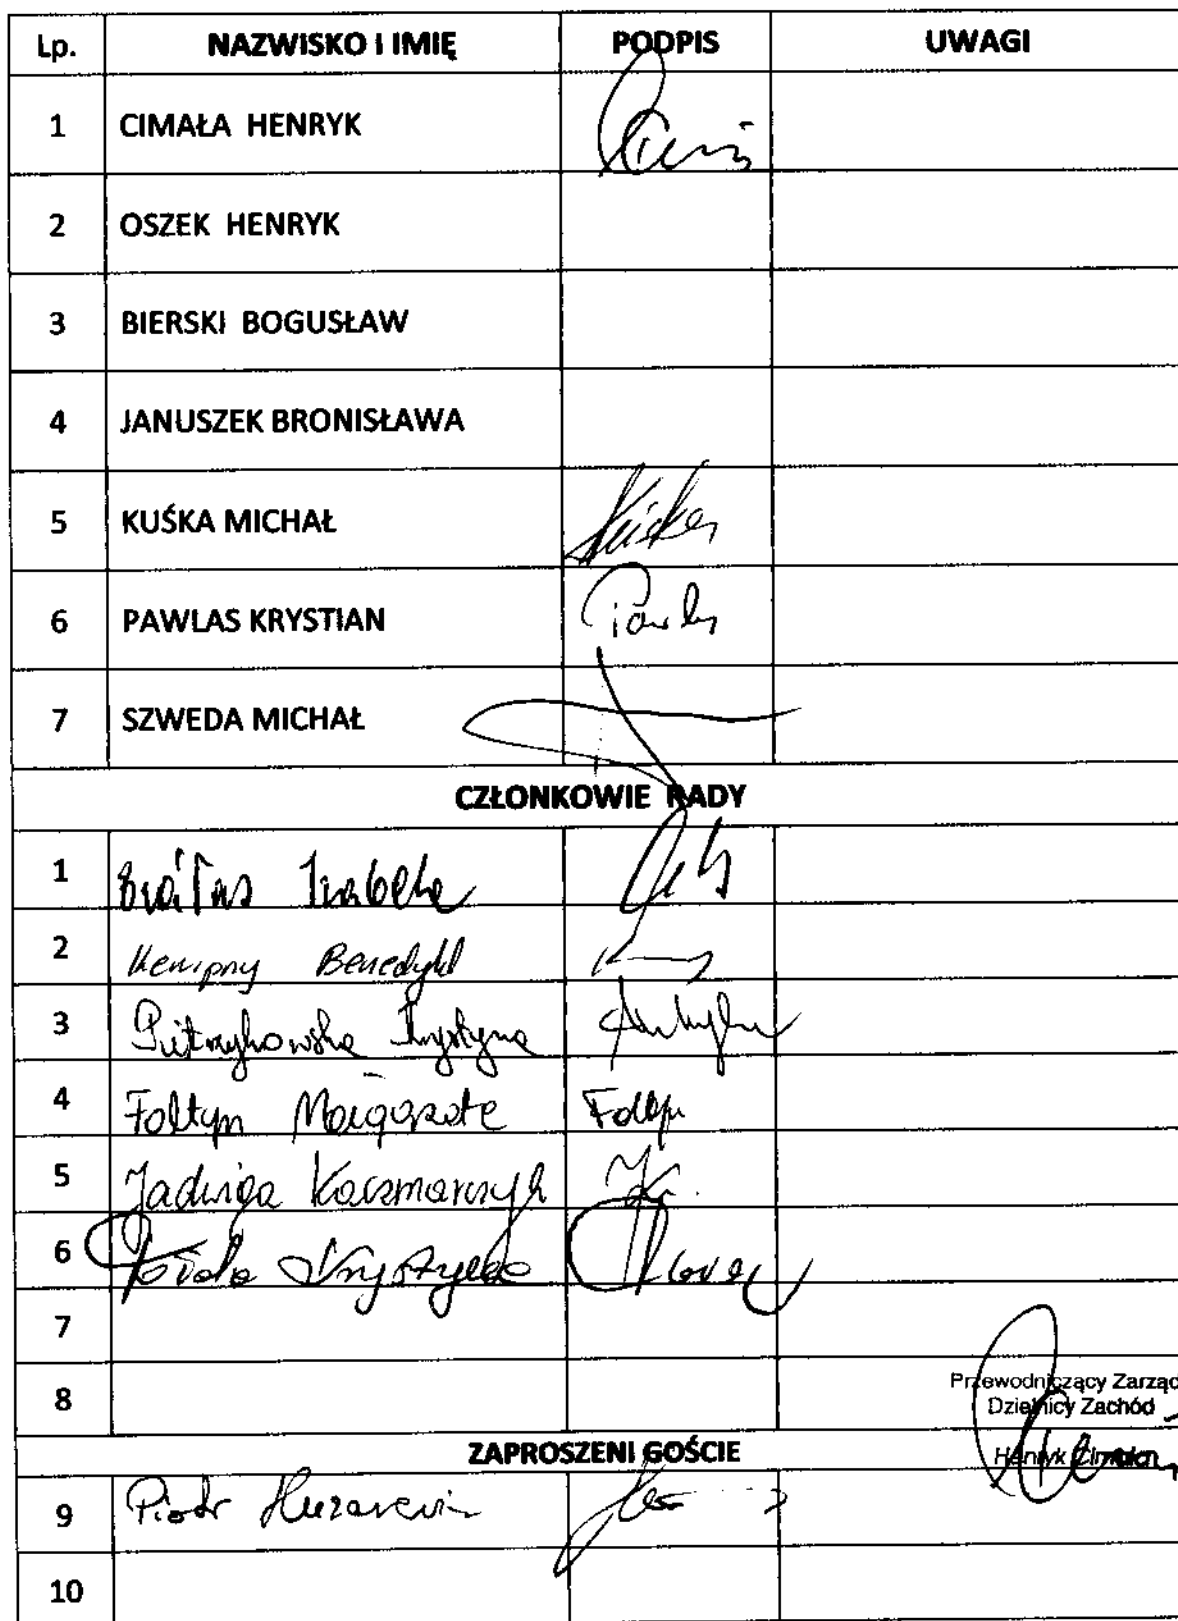 Lp. NAZWISKO I IMIĘ PODPIS UWAGI
1 CIMAŁA HENRYK
2 OSZEK HENRYK
3 BIERSKI BOGUSŁAW
4 JANUSZEK BRONISŁAWA
5 KUŚKA MICHAŁ
6 PAWLAS KRYSTIAN
7 SZWEDA MICHAŁ
CZŁONKOWIE RADY
1 Izabela
2 Kempny Benedykt
3 Pietrzykowska Krystyna
4 Fołtyn Małgorzata Fołtyn
5 Jadwiga Kaczmarczyk JK.
6
7
8 Przewodniczący Zarząd
Dzielnicy Zachód
Henryk Cimała
ZAPROSZENI GOŚCIE
9 Piotr
10